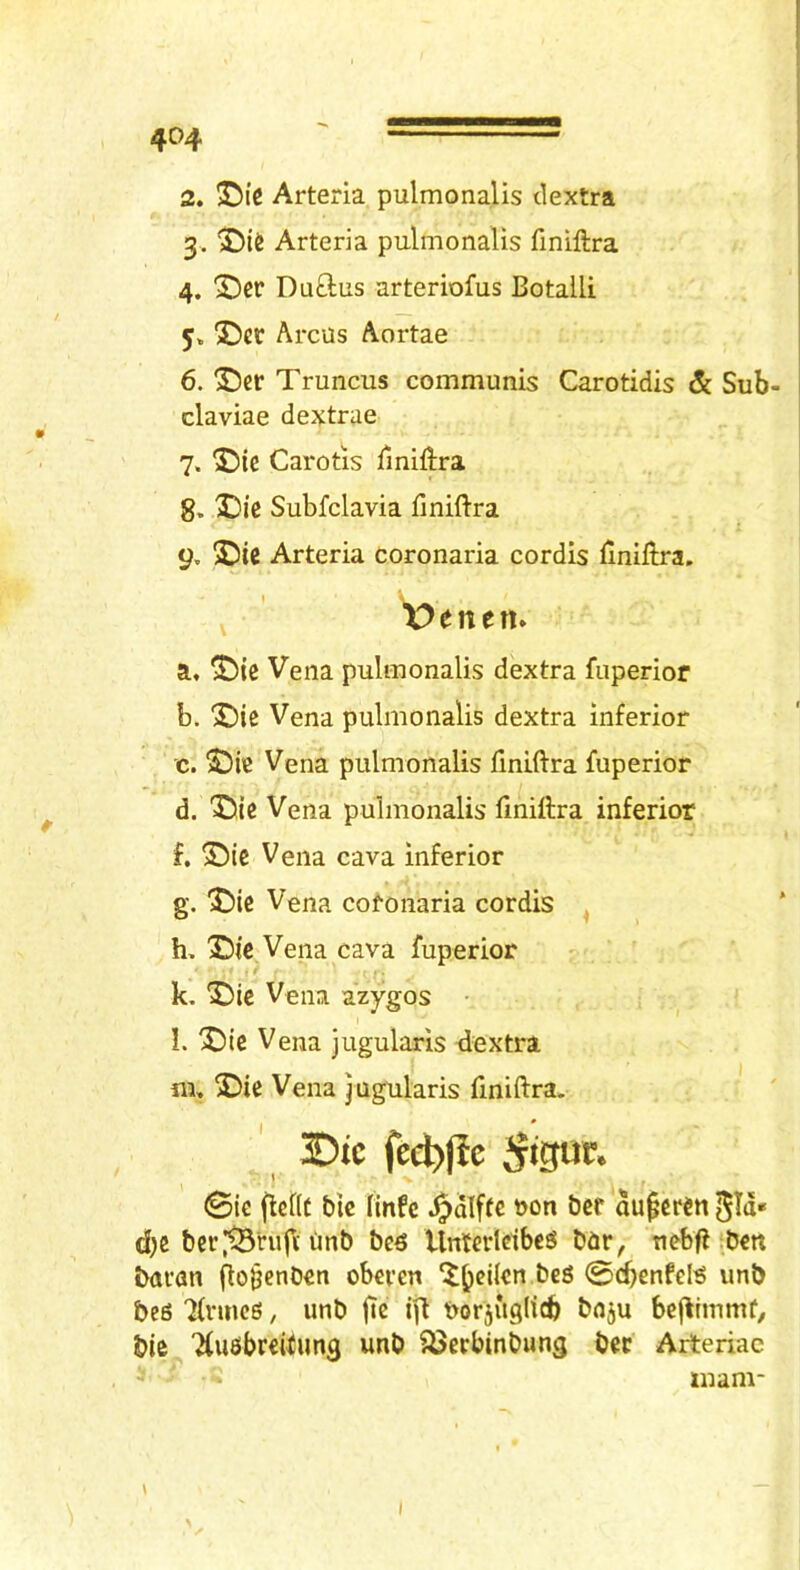 404
2. Die Arteria pulmonalis dextra
3. Die Arteria pulmonalis ſiniſtra
4. Der Ductus arterioſus Botalli
5. Der Arcus Aortae
6. Der Truncus communis Carotidis & Sub-
claviae dextrae
7. Die Carotis ſiniſtra
8. Die Subſclavia ſiniſtra
9. Die Arteria coronaria cordis ſiniſtra.
Venen.
a. Die Vena pulmonalis dextra ſuperior
b. Die Vena pulmonalis dextra inferior
c. Die Vena pulmonalis ſiniſtra ſuperior
d. Die Vena pulmonalis ſiniſtra inferior
f. Die Vena cava inferior
g. Die Vena coronaria cordis
h. Die Vena cava ſuperior
k. Die Vena azygos
l. Die Vena jugularis dextra
m. Die Vena jugularis ſiniſtra.
Die ſechſte Figur.
Sie ſtellt die linke Hälfte von der äußeren Flä-
che der Bruſt und des Unterleibes dar, nebſt den
daran ſtoßenden oberen Theilen des Schenkels und
des Armes, und ſie iſt vorzüglich dazu beſtimmt,
die Ausbreitung und Verbindung der Arteriae
mam-